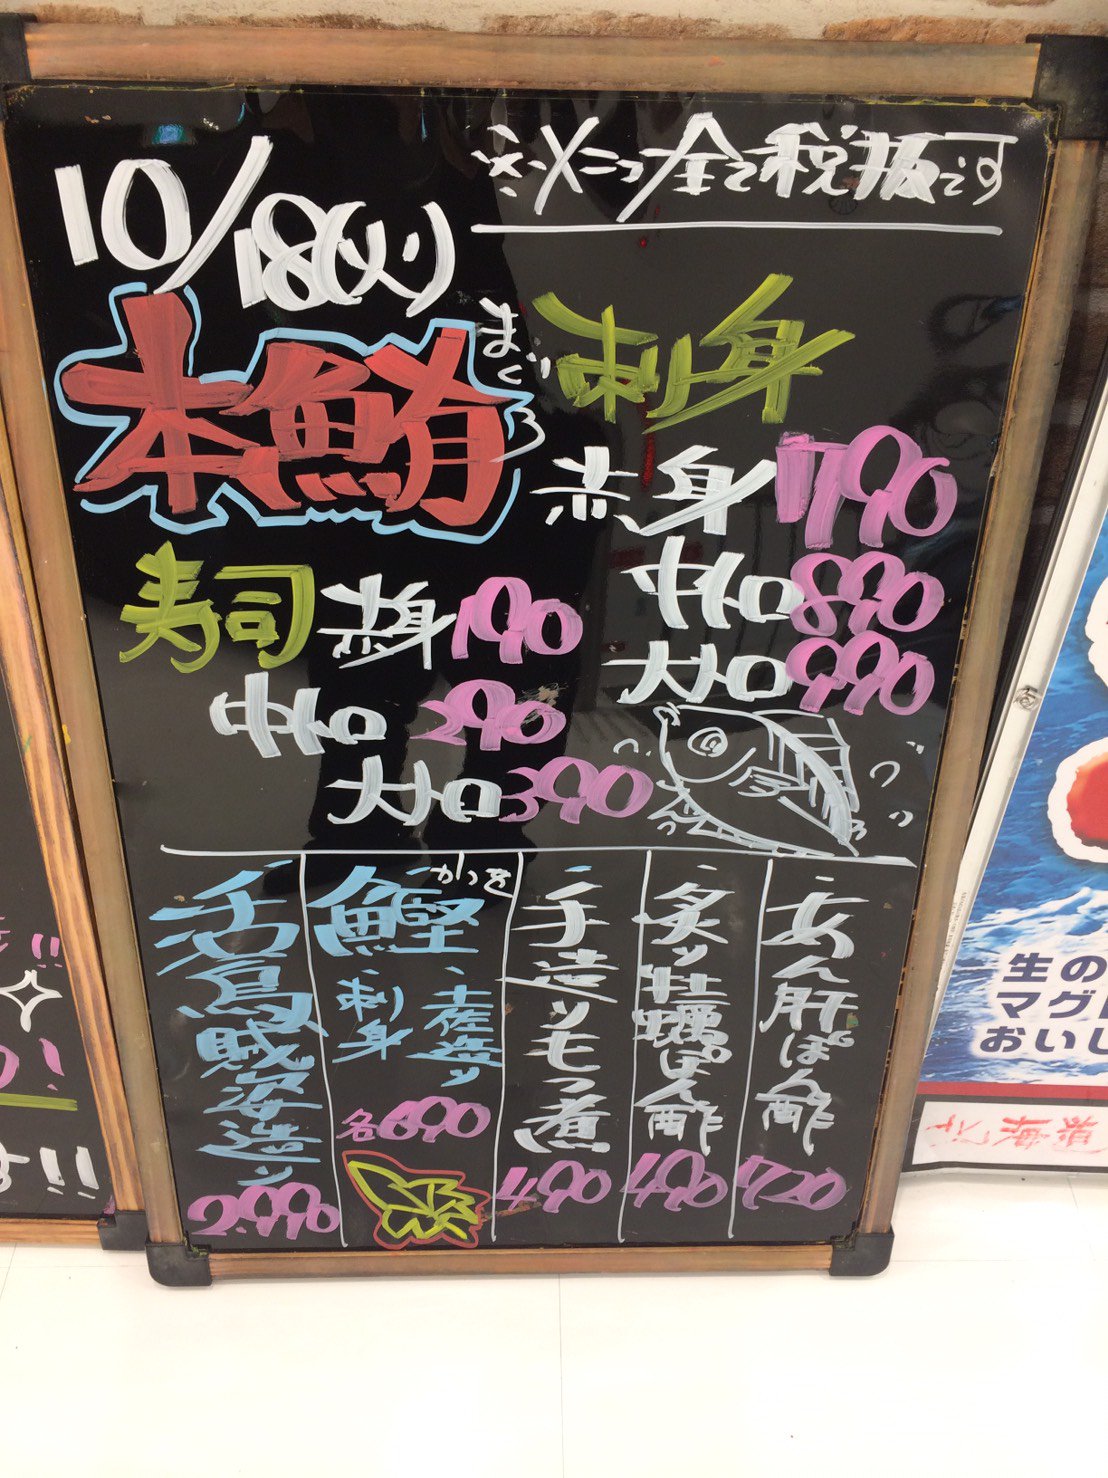 10/18(火)
おメニュー全て税抜です
本鮪
まぐろ
刺身
赤身 790
中トロ 890
大トロ 990
寿司 赤身 190
中トロ 290
大トロ 390
活烏賊姿造り
2.990
鰹
かつを
土佐造り
刺身
各690
手造りもつ煮
490
炙り牡蠣ぽん酢
490
あん肝ぽん酢
720
生の
マグ
おいし
北海道